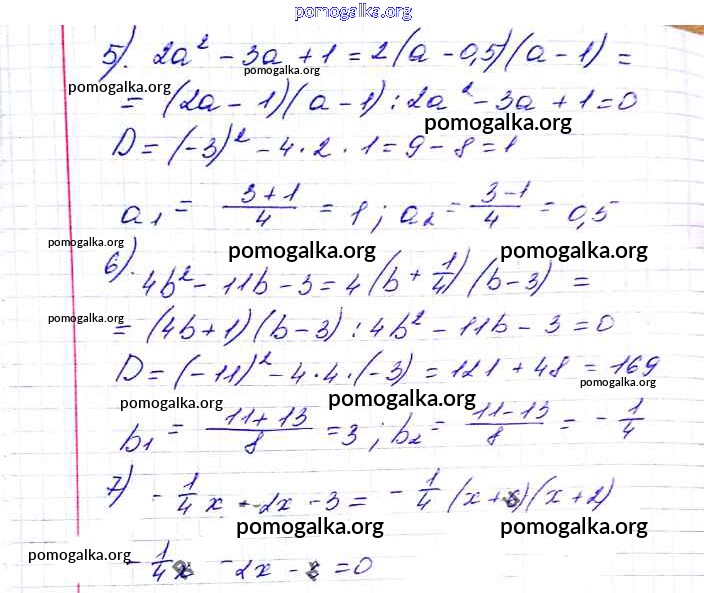 pomogalka.org
5). 2a² - 3a + 1 = 2(a - 0,5)(a - 1) =
pomogalka.org pomogalka.org
= (2a - 1)(a - 1) : 2a² - 3a + 1 = 0
pomogalka.org
D = (-3)² - 4 · 2 · 1 = 9 - 8 = 1
a₁ = (3+1)/4 = 1 ; a₂ = (3-1)/4 = 0,5
pomogalka.org pomogalka.org pomogalka.org
6). 4b² - 11b - 3 = 4(b + 1/4)(b - 3) =
pomogalka.org
= (4b + 1)(b - 3) : 4b² - 11b - 3 = 0
D = (-11)² - 4 · 4 · (-3) = 121 + 48 = 169
pomogalka.org
pomogalka.org pomogalka.org
b₁ = (11+13)/8 = 3 ; b₂ = (11-13)/8 = -1/4
7) -1/4 x - 2x - 3 = -1/4 (x + 6)(x + 2)
pomogalka.org pomogalka.org
pomogalka.org
-1/4 x - 2x - 3 = 0